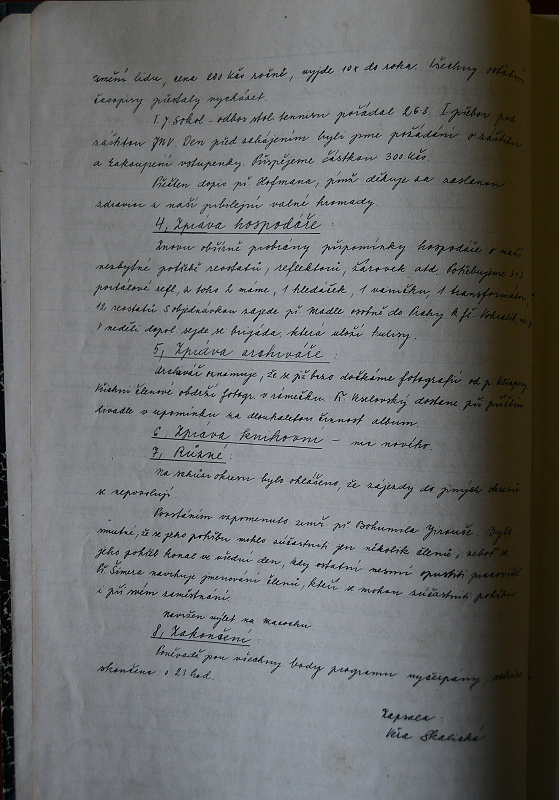 umění lidu, cena 200 Kčs ročně, vyjde 10x do roka. Všechny ostatní
časopisy přestaly vycházet.
T.J. Sokol - odbor stol. tennisu pořádal 26.3. I přebor pod
záštitou JNV. Den před zahájením byli jsme požádáni o záštitu
a zakoupení vstupenky. Přispějeme částkou 300 Kčs.
Přečten dopis př. Hofmana, jímž děkuje za zaslanou
zdravici z naší jubilejní valné hromady.
4, Zpráva hospodáře:
Znovu obšírně probrány připomínky hospodáře o naší
nezbytné potřebě reostatů, reflektorů, žárovek atd. Potřebujeme
portálové refl, z toho 2 máme, 1 hledáček, 1 vaničku, 1 transformátor,
12 reostatů. S objednávkou zajede př. Madle osobně do Prahy k fě.
V neděli dopol. sejde se brigáda, která uloží kulisy.
5, Zpráva archiváře:
Archivář oznamuje, že se již brzo dočkáme fotografií od p.
Všichni členové obdrží fotogr. v rámečku. Př. dostane při příštím
divadle v upomínku za dlouholetou činnost album.
6, Zpráva knihovn - nic nového.
7, Různé:
Na schůzi okrsku bylo ohlášeno, že zájezdy do jiných okresů
se nepovolují.
Povstáním vzpomenuto zemř. př. Bohumila Jirouše. Bylo
smutné, že se jeho pohřbu mohlo súčastniti jen několik členů, neboť se
jeho pohřeb konal ve všední den, kdy ostatní nesmí opustiti pracoviště.
Př. Šimera navrhuje jmenování členů, kteří se mohou súčastniti pohřbu
i při svém zaměstnání.
Navržen výlet na Macochu.
8, Zakončení:
Poněvadž jsou všechny body programu vyčerpány schůze
skončena o 23 hod.
Zapsala:
Věra Skalická